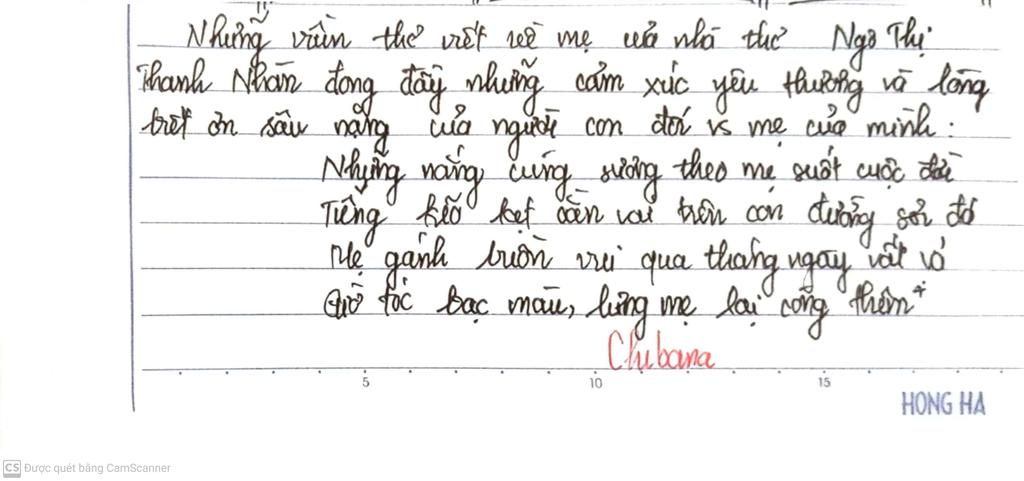 Những vần thơ viết về mẹ của nhà thơ Ngô Thị
Thanh Nhàn đong đầy những cảm xúc yêu thương và lòng
biết ơn sâu nặng của người con đối vs mẹ của mình:
Những nắng cùng sương theo mẹ suốt cuộc đời
Tiếng kẽo kẹt oằn vai trên con đường sỏi đá
Mẹ gánh buồn vui qua tháng ngày vất vả
Giờ tóc bạc màu, lưng mẹ lại còng thêm
Chibana
5 10 15
HONG HA
CS Được quét bằng CamScanner